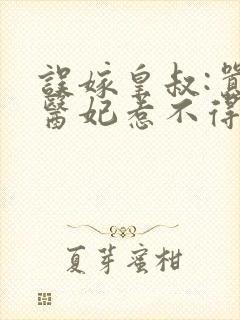 誤嫁皇叔:
醫妃惹不得
夏芽蜜柑